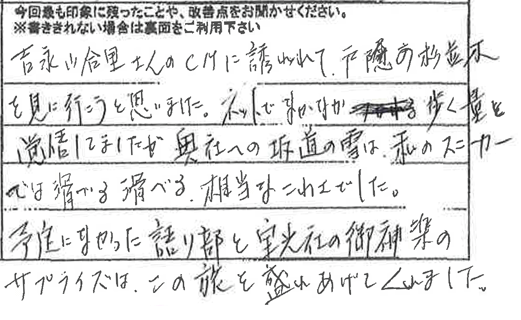 今回最も印象に残ったことや、改善点をお聞かせください。
※書ききれない場合は裏面をご利用下さい
吉永小合里さんのCMに誘われて、戸隠の杉並木
を見に行こうと思いました。ネットでなかなか 歩く量を
覚悟してましたが奥社への坂道の雪は、私のスニーカー
では滑べる滑べる、相当なこわさでした。
予定になかった語り部と宝光社の御神楽の
サプライズは、この旅を盛りあげてくれました。